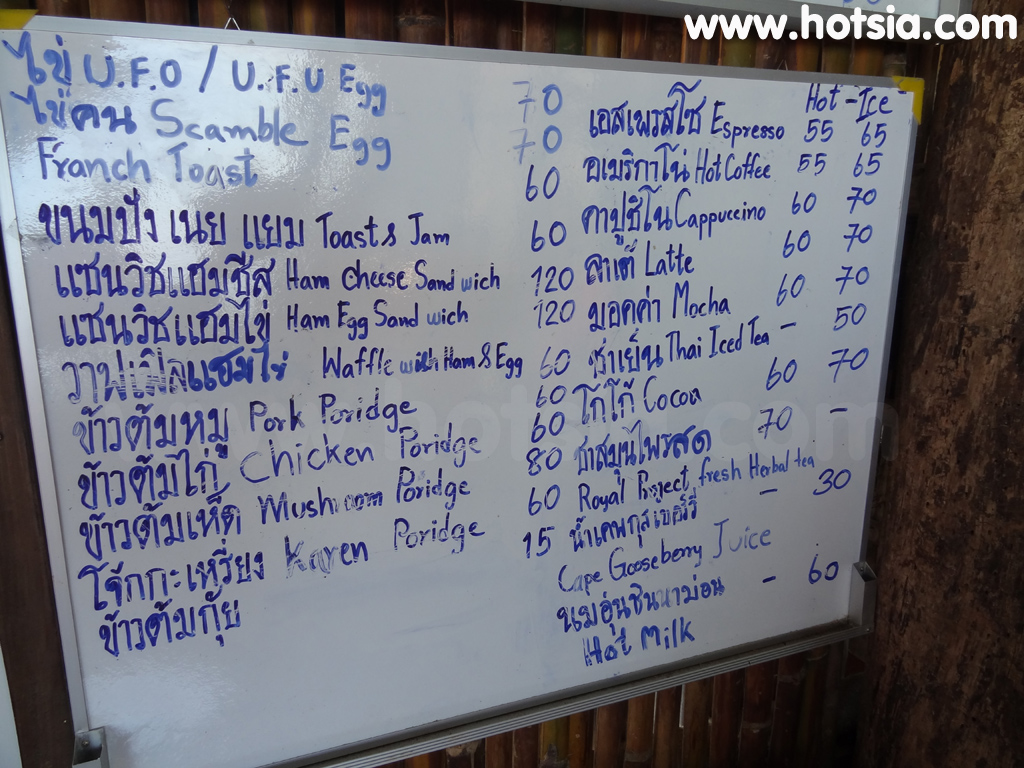 www.hotsia.com
ไข่ U.F.O / U.F.U Egg 70
ไข่คน Scamble Egg 70
Franch Toast 60
ขนมปัง เนย แยม Toast & Jam 60
แซนวิชแฮมชีส Ham cheese Sand wich 120
แซนวิชแฮมไข่ Ham Egg Sand wich 120
วาฟเฟิลแฮมไข่ Waffle with Ham & Egg 60
ข้าวต้มหมู Pork Poridge 60
ข้าวต้มไก่ Chicken Poridge 60
ข้าวต้มเห็ด Mushroom Poridge 80
โจ๊กกะเหรี่ยง Karen Poridge 60
ข้าวต้มกุ๊ย 15
Hot - Ice
เอสเพรสโซ Espresso 55 65
อเมริกาโน่ Hot Coffee 55 65
คาปูชิโน Cappuccino 60 70
ลาเต้ Latte 60 70
มอคค่า Mocha 60 70
ชาเย็น Thai Iced Tea - 50
โก้โก้ Cocoa 60 70
ชาสมุนไพรสด 70 -
Royal Project fresh Herbal tea
น้ำเคพกูสเบอร์รี่ - 30
Cape Gooseberry Juice
นมอุ่นซินนาม่อน - 60
Hot Milk